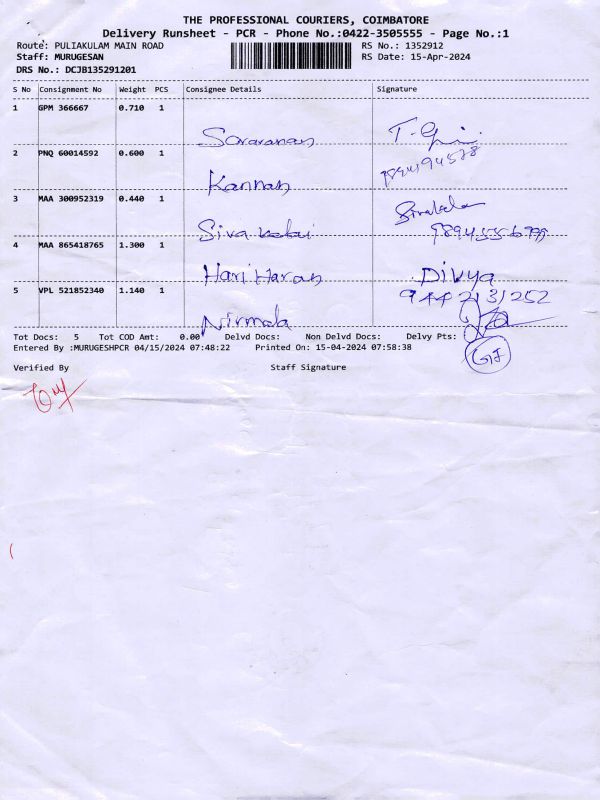 THE PROFESSIONAL COURIERS, COIMBATORE
Delivery Runsheet - PCR - Phone No.:0422-3505555 - Page No.:1
Route: PULIAKULAM MAIN ROAD RS No.: 1352912
Staff: MURUGESAN RS Date: 15-Apr-2024
DRS No.: DCJB135291201
S No Consignment No Weight PCS Consignee Details Signature
1 GPM 366667 0.710 1
Saravanan
2 PNQ 60014592 0.600 1
Kannan
3 MAA 300952319 0.440 1
Siva
4 MAA 865418765 1.300 1
Hari Haran Divya
5 VPL 521852340 1.140 1 9442131252
Nirmala
Tot Docs: 5 Tot COD Amt: 0.00 Delvd Docs: Non Delvd Docs: Delvy Pts:
Entered By :MURUGESHPCR 04/15/2024 07:48:22 Printed On: 15-04-2024 07:58:38
Verified By Staff Signature